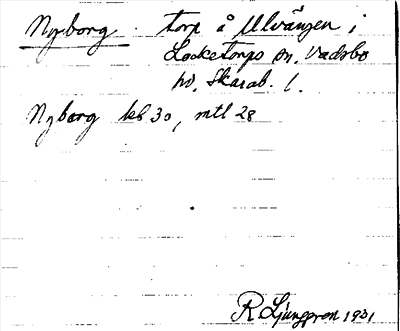 Nyborg. torp å Ulvängen i
Locketorps sn. Vadsbo
hd. Skarab. l.
Nyborg kb 30, mtl 28
R Ljunggren 1931